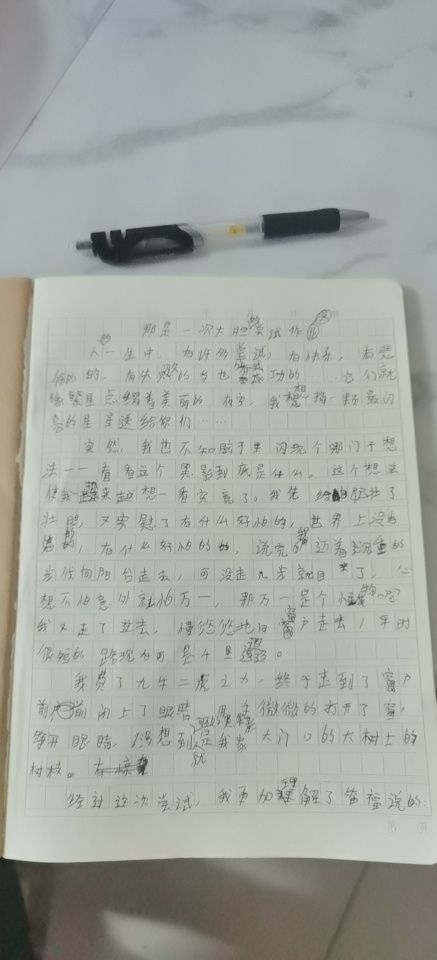 那是一次大胆的尝试作业
人的一生中,有许多尝试,有快乐,有悲
伤的,有失败的当也有成功的……它们就
像繁星点缀着美丽的夜空,我想摘一颗最闪
亮的星星送给你们……
突然,我也不知脑子里闪现个哪门子想
法——看看这个黑影到底是什么。这个想法
使我 起想一看究竟了,我先给自己壮了
壮胆,又安慰了有什么好怕的,世界上没有
鬼的,有什么好怕的,说完我迈着沉重的
步伐向阳台走去,可没走几步就
想不怕意外就怕万一,那万一是个怪物呢?
我又走了 去,慢悠悠地向窗户走去,平时
很短的路现在可是千里迢迢。
我费了九牛二虎之力,终于走到了窗户
前 前闭上了眼睛,用手微微的打开了窗,
睁开眼睛,没想到 黑影就是我家大门口的大树上的
树枝。
经过这次尝试,我更加理解了 说的: